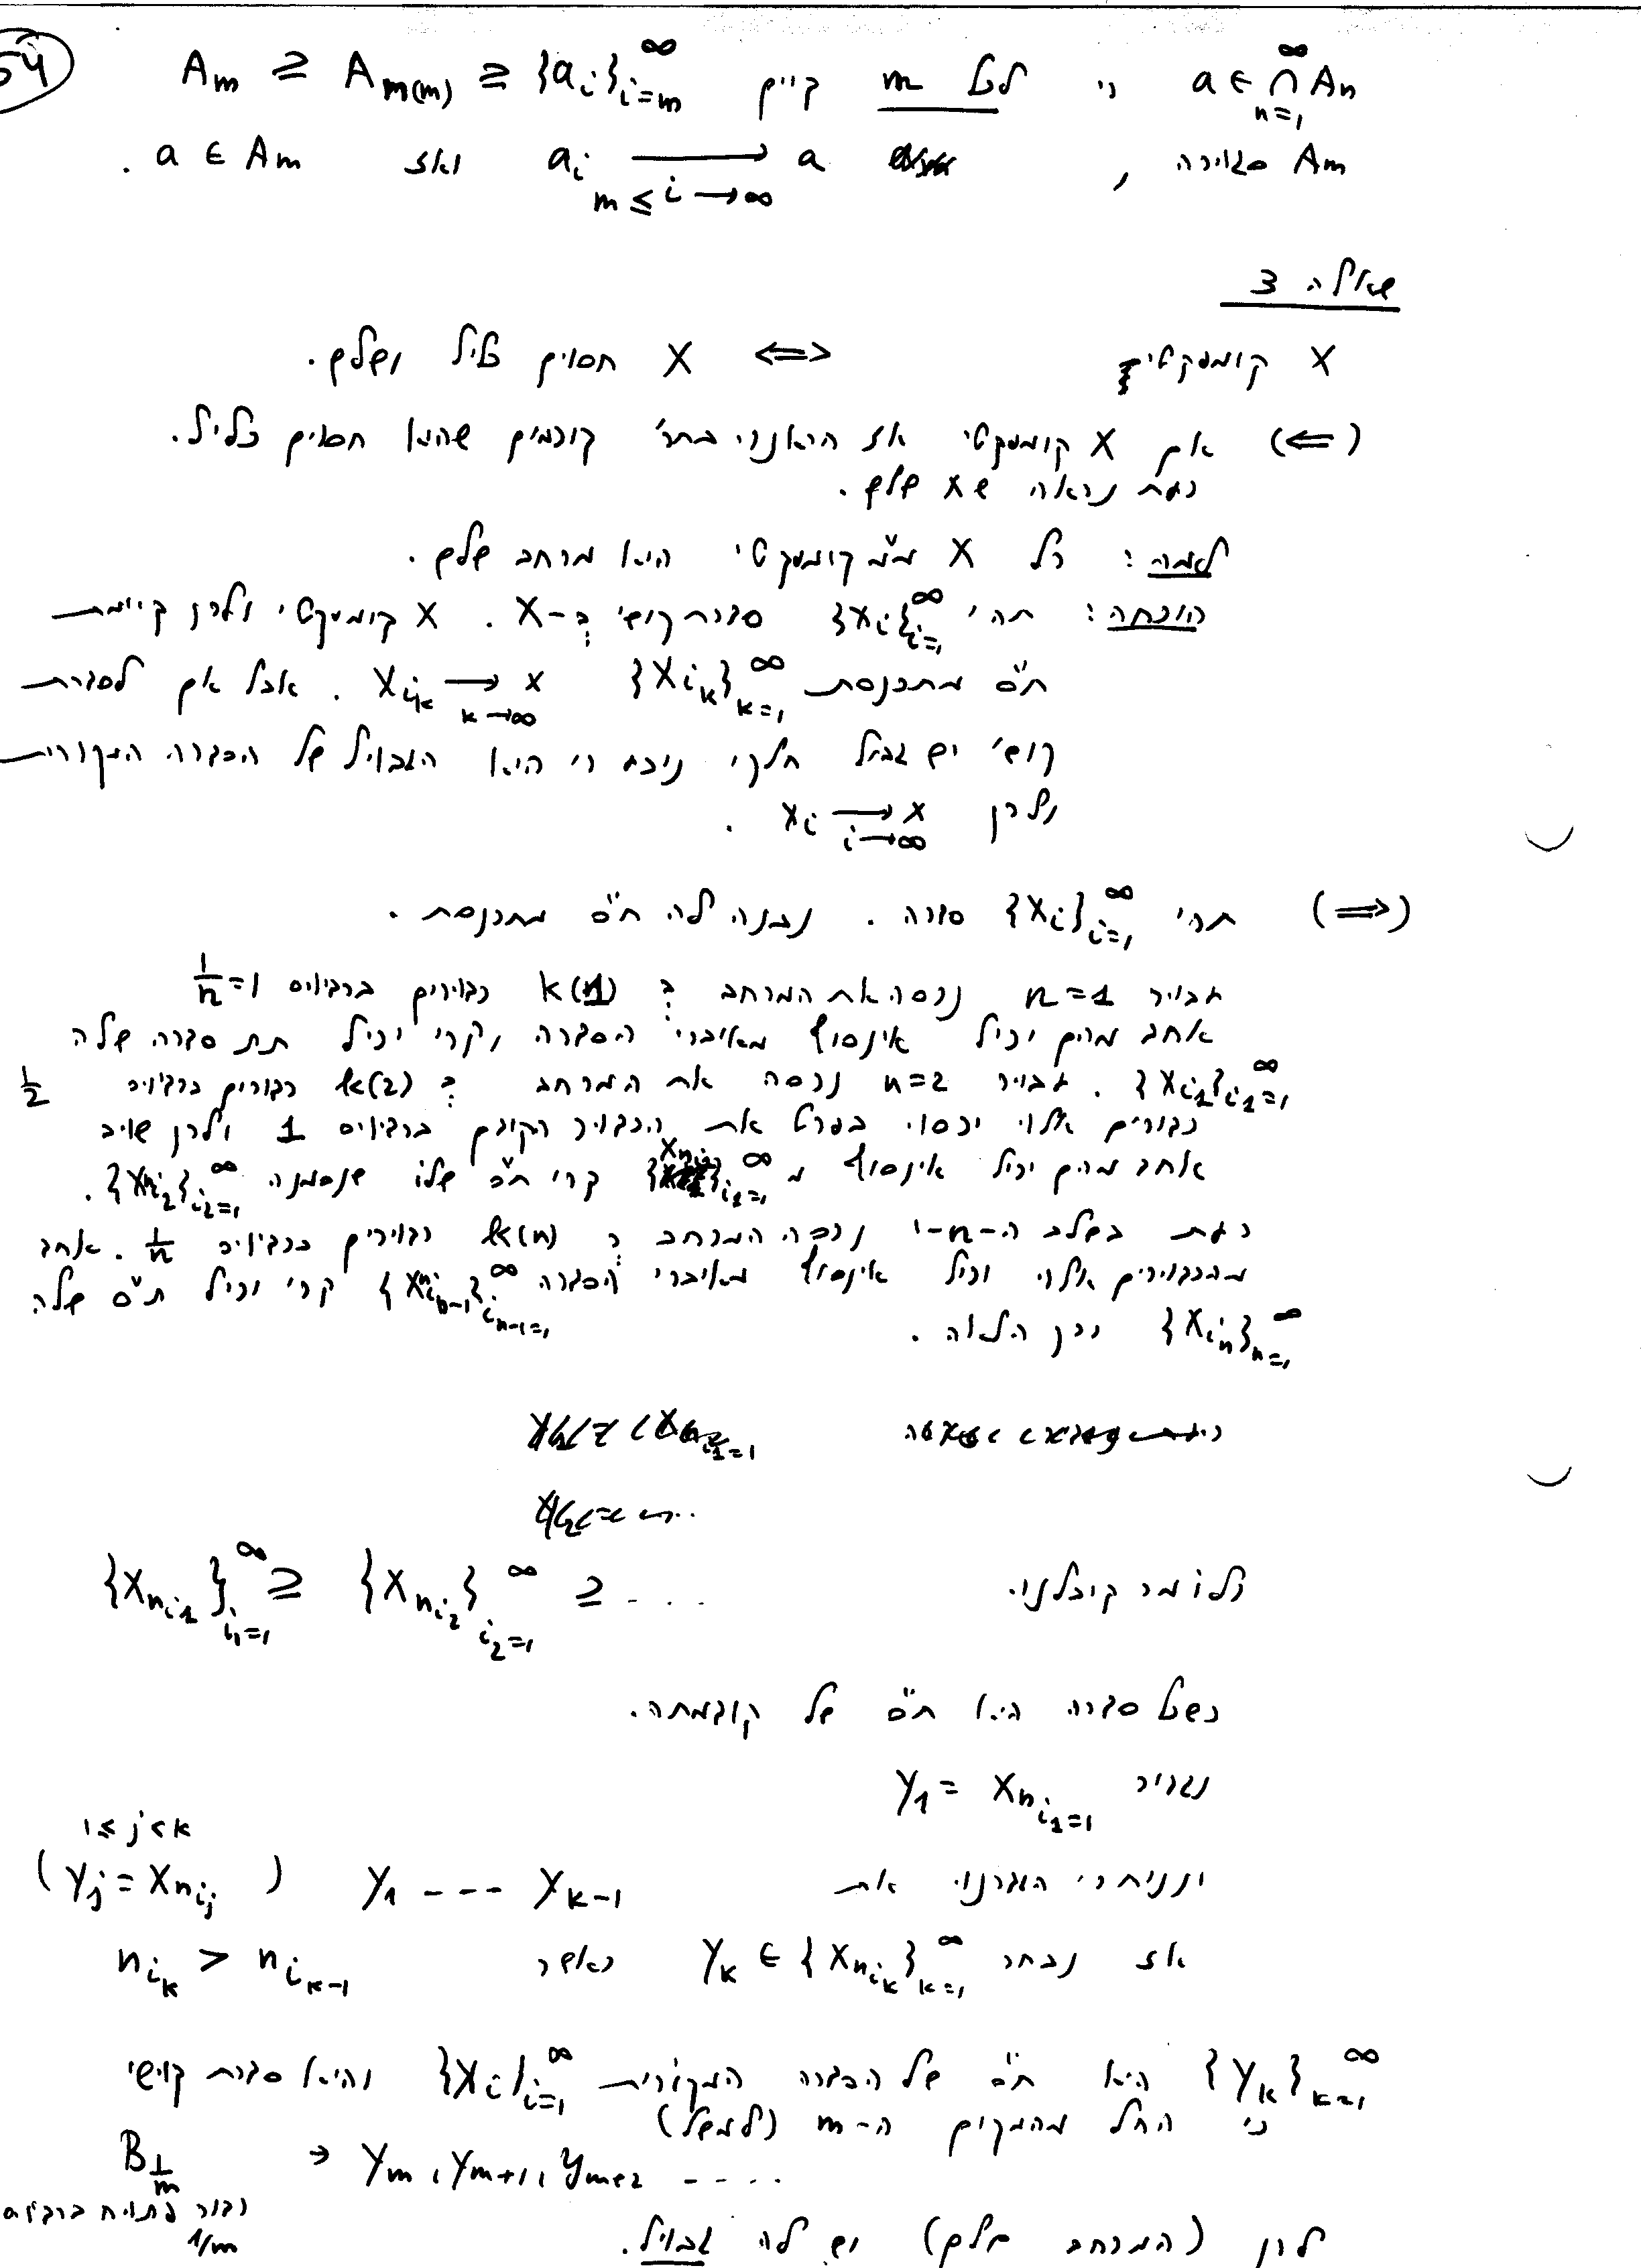 54
a ∈ ∩_{n=1}^∞ A_n כי לכל m קיים A_m ⊇ A_{m(m)} ⊇ {a_i}_{i=m}^∞
A_m סגורה , a_i ⟶_{m≤i→∞} a ואז a ∈ A_m .
שאלה 3
X קומפקטי ⟺ X חסום כליל ושלם.
(⇐) אם X קומפקטי אז הראנו בתר' קודמים שהוא חסום כליל.
כעת נראה ש X שלם.
למה: כל X מ"מ קומפקטי הוא מרחב שלם.
הוכחה: תהי {x_i}_{i=1}^∞ סדרת קושי ב-X. X קומפקטי ולכן קיימת
ת"ס מתכנסת {x_{i_k}}_{k=1}^∞ x_{i_k} ⟶_{k→∞} x . אבל אם לסדרת
קושי יש גבול חלקי נובע כי הוא הגבול של הסדרה המקורית
ולכן x_i ⟶_{i→∞} x .
(⇒) תהי {x_i}_{i=1}^∞ סדרה. נבנה לה ת"ס מתכנסת.
עבור n=1 נכסה את המרחב ב k(1) כדורים ברדיוס 1/n=1
אחד מהם יכיל אינסוף מאיברי הסדרה וקרי יכיל תת סדרה שלה
{x_{i_1}}_{i_1=1}^∞ . עבור n=2 נכסה את המרחב ב k(2) כדורים ברדיוס 1/2
כדורים אלו יכסו בפרט את הכדור הקודם ברדיוס 1 ולכן שוב
אחד מהם יכיל אינסוף מ {x_{n_{i_1}}}_{i_1=1}^∞ קרי ת"ס שלו שנסמנה {x_{n_{i_2}}}_{i_2=1}^∞ .
כעת בשלב ה-n-י נכסה המרחב ב k(n) כדורים ברדיוס 1/n . אחד
מהכדורים אלו יכיל אינסוף מאיברי הסדרה {x_{n_{i_{n-1}}}}_{i_{n-1}=1}^∞ קרי יכיל ת"ס שלה
{x_{i_n}}_{n=1}^∞ וכן הלאה .
כלומר קיבלנו. {x_{n_{i_1}}}_{i_1=1}^∞ ⊇ {x_{n_{i_2}}}_{i_2=1}^∞ ⊇ ....
כשכל סדרה היא ת"ס של קודמתה.
נגדיר y_1 = x_{n_{i_1=1}}
ונניח כי הגדרנו את y_1 --- y_{k-1} (y_j = x_{n_{i_j}}) 1≤j<k
אז נבחר y_k ∈ {x_{n_{i_k}}}_{k=1}^∞ כאשר n_{i_k} > n_{i_{k-1}}
{y_k}_{k=1}^∞ היא ת"ס של הסדרה המקורית {x_i}_{i=1}^∞ והיא סדרת קושי
כי החל מהמקום ה-m (למשל)
B_{1/m} ∋ y_m, y_{m+1}, y_{m+2} ....
כדור פתוח ברדיוס
1/m
לכן (המרחב שלם) יש לה גבול.